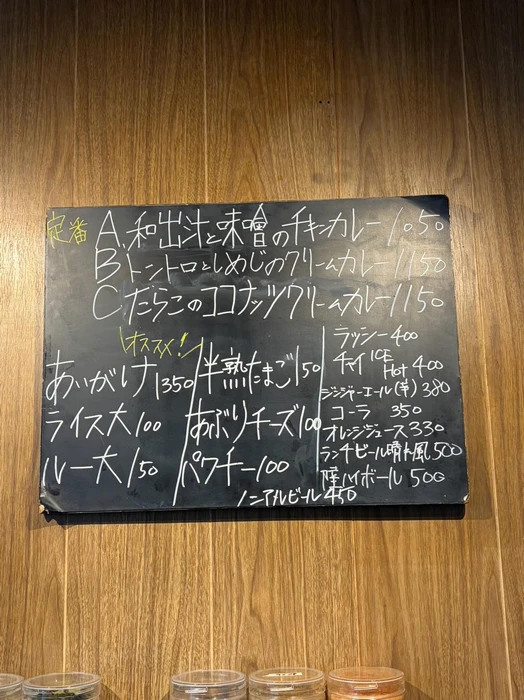 定番 A.和出汁と味噌のチキンカレー 1050
B トントロとしめじのクリームカレー 1150
C たらこのココナッツクリームカレー 1150
\オススメ!/
あいがけ 1350
ライス大 100
ルー大 150
半熟たまご 150
あぶりチーズ 100
パクチー 100
ノンアルビール 450
ラッシー 400
チャイ ICE Hot 400
ジンジャーエール(辛) 380
コーラ 350
オレンジジュース 330
ランチビール 晴れ風 500
ハイボール 500